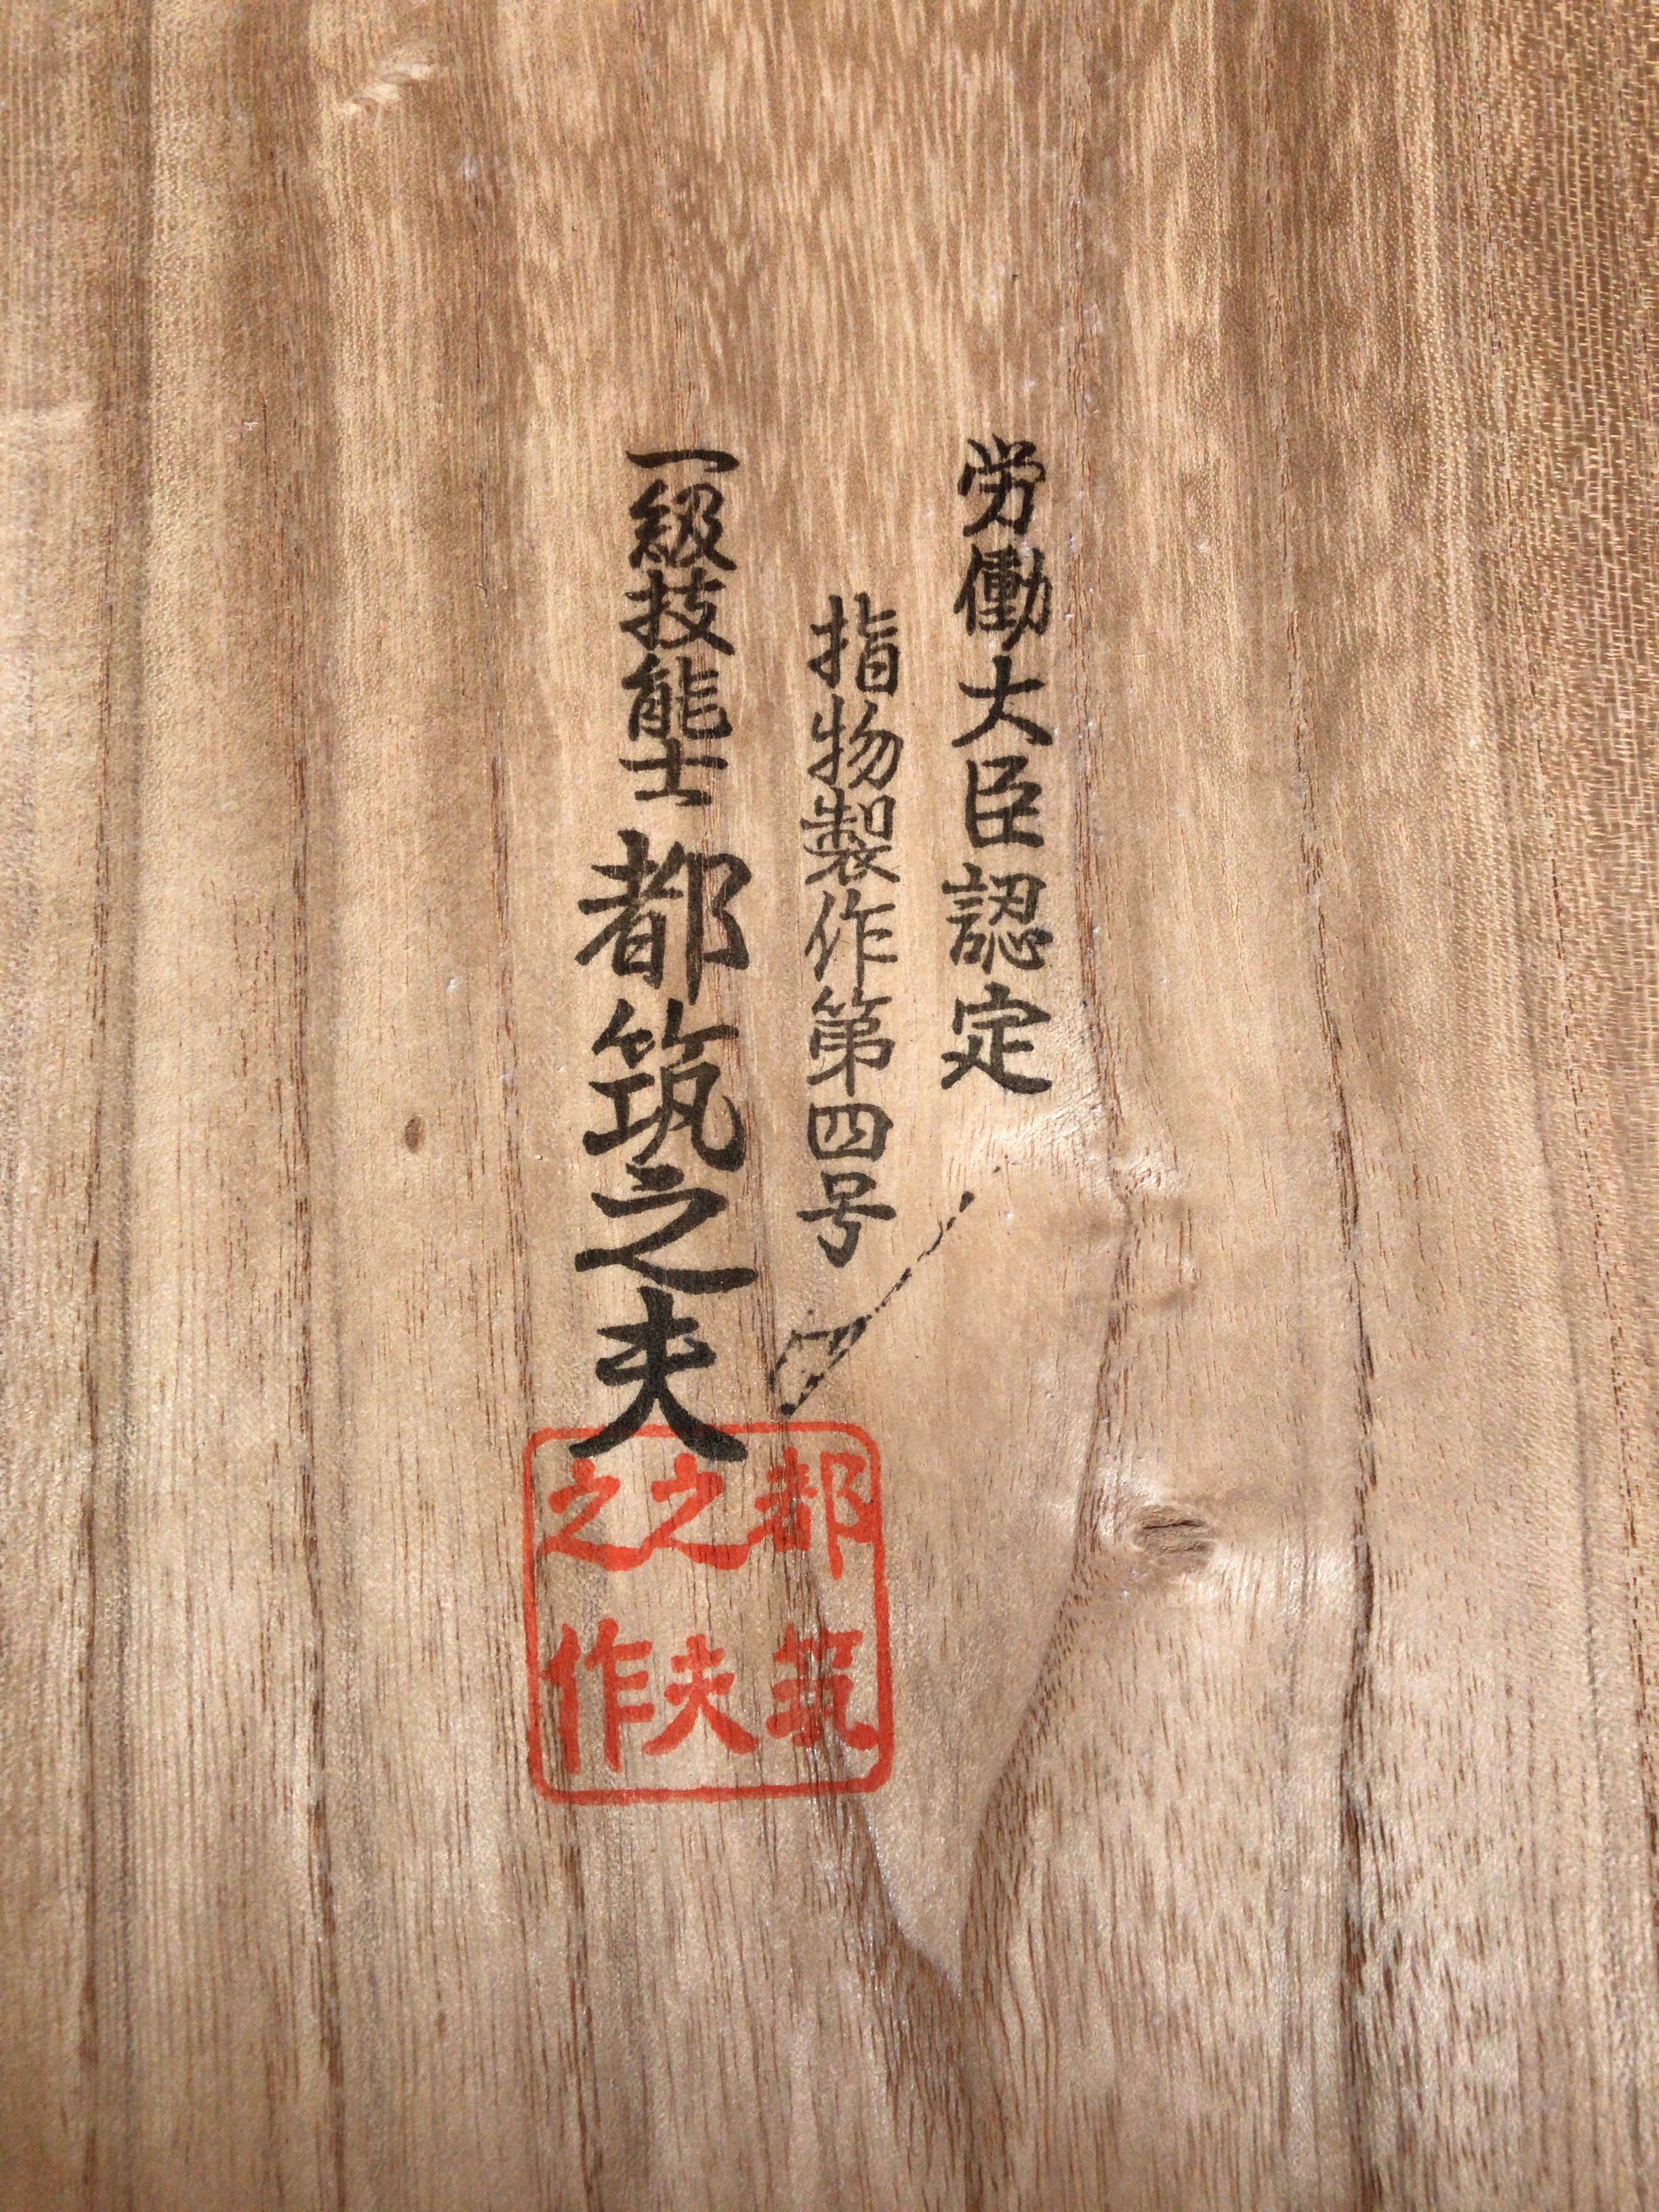 労働大臣認定
指物製作第四号
一級技能士 都筑之夫
都筑
之夫
之作